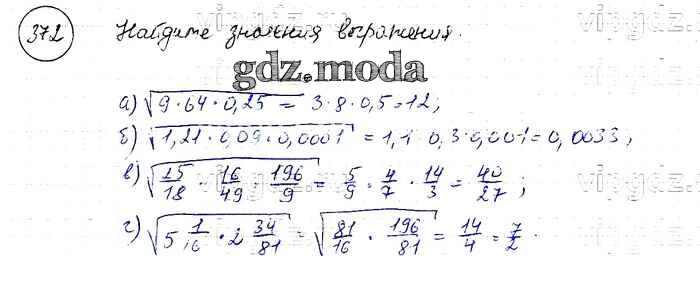 372 Найдите значения выражения.
gdz.moda
а) √(9·64·0,25) = 3·8·0,5=12;
б) √(1,21·0,09·0,0001) = 1,1·0,3·0,001=0,0033;
в) √(25/18·16/49·196/9) = 5/9·4/7·14/3 = 40/27;
г) √(5 1/16·2 34/81) = √(81/16·196/81) = 14/4 = 7/2.